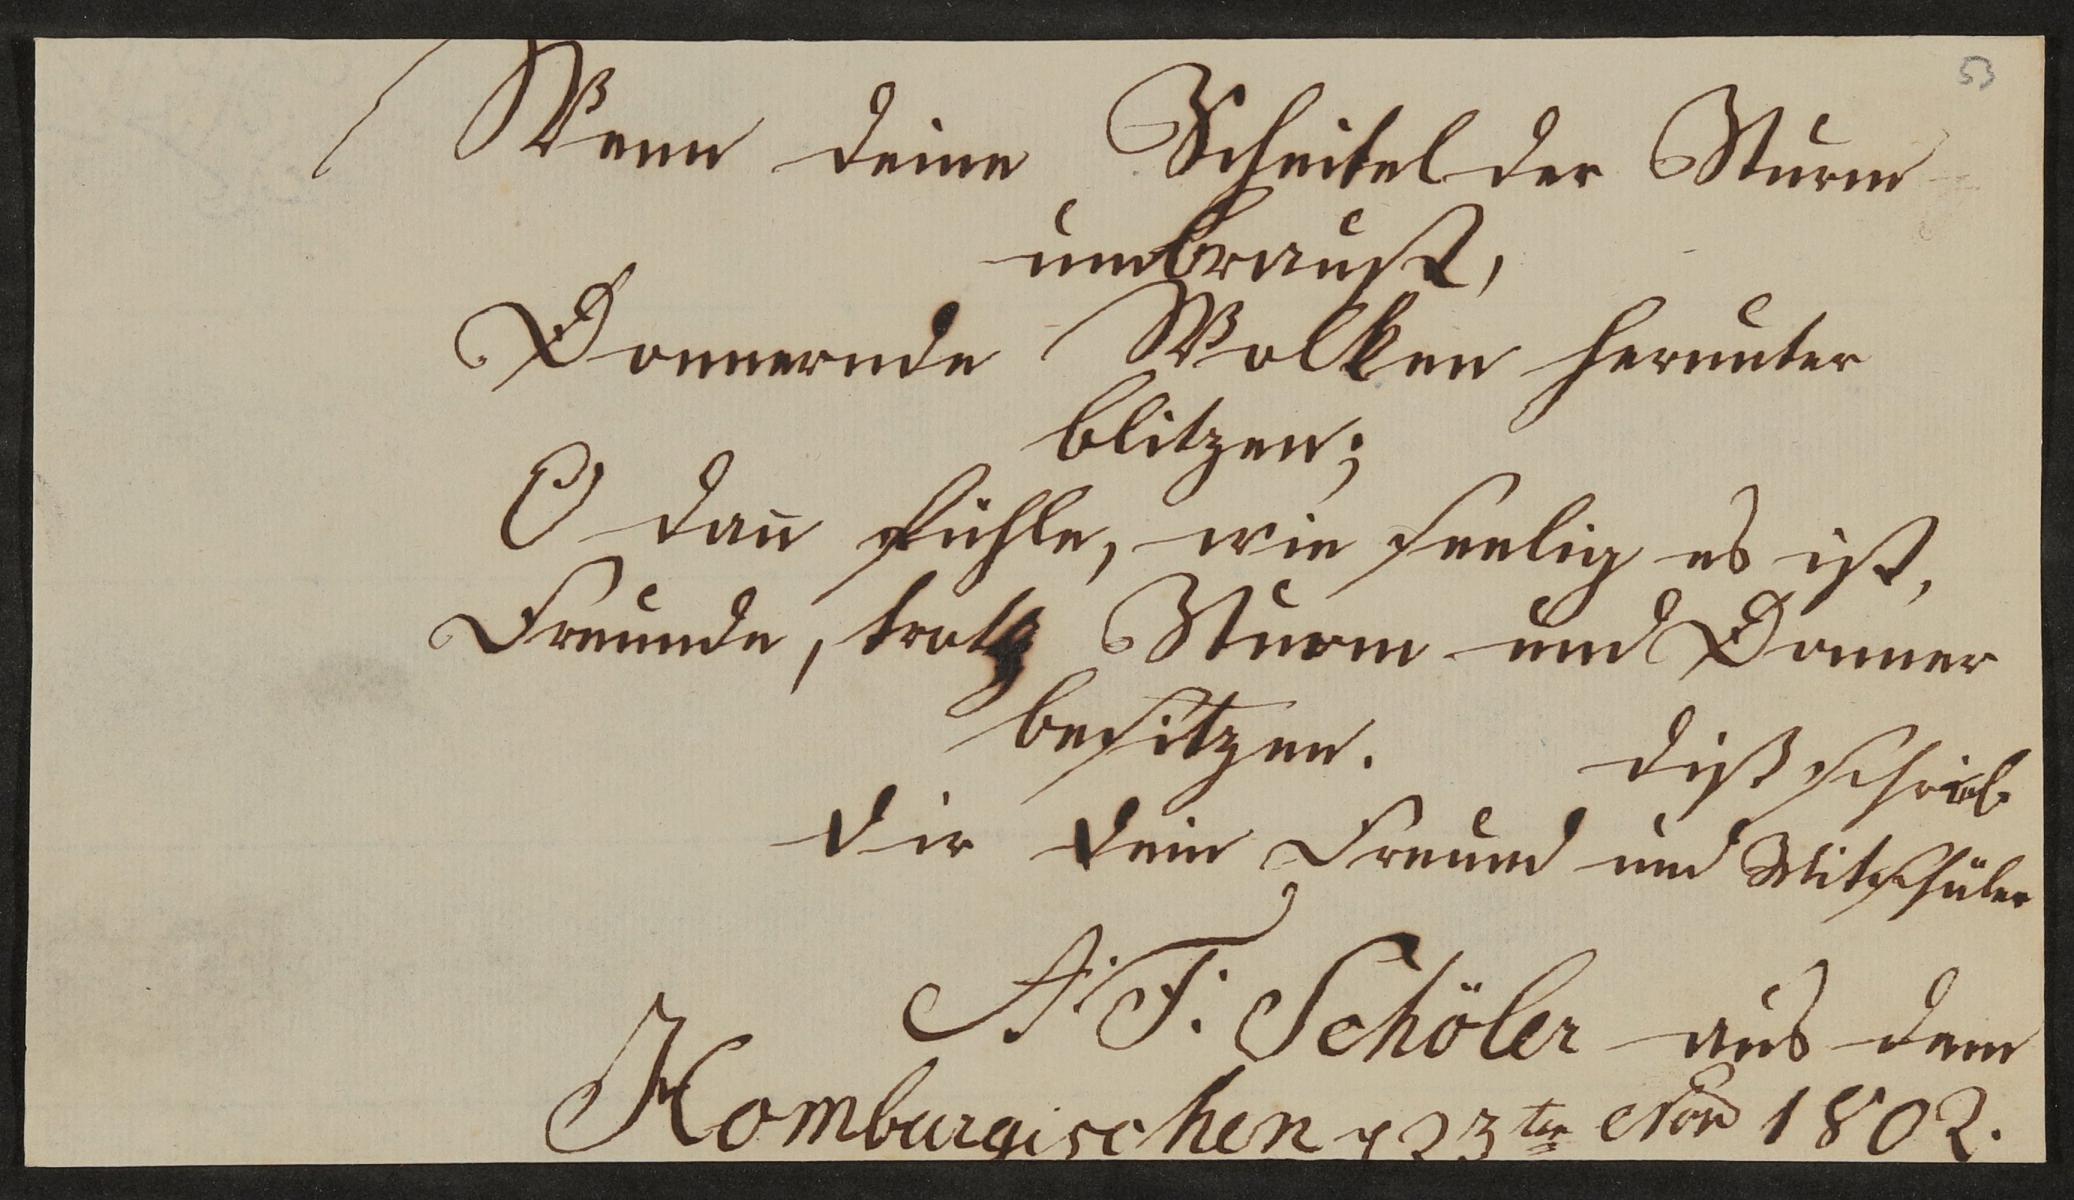 53
Wenn deine Scheitel der Sturm
umbraust,
Donnernde Wolken herunter
blitzen;
O dañ fühle, wie seelig es ist,
Freunde, trotz Sturm und Donner
besitzen.
dißs schrieb
dir dein Freund und Mitschüler
A. F. Schöler aus dem
Homburgischen 23ten Nov 1802.